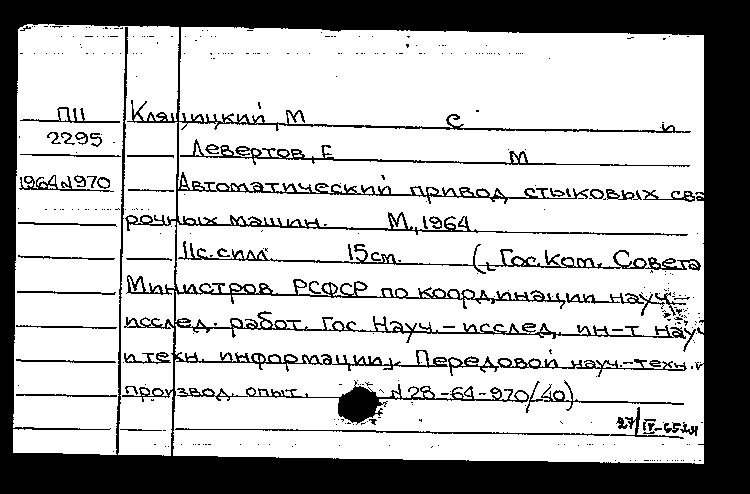 П11 Клящицкий, М С и
2295 Левертов, Е М
1964 N970 Автоматический привод стыковых сва
рочных машин. М., 1964.
11с. с илл. 15 cm. (Гос. Ком. Совета
Министров РСФСР по координации науч-
исслед. работ. Гос. Науч.-исслед. ин-т науч
и техн. информации. Передовой науч.-техн. и
производ. опыт. N 28-64-970/40)